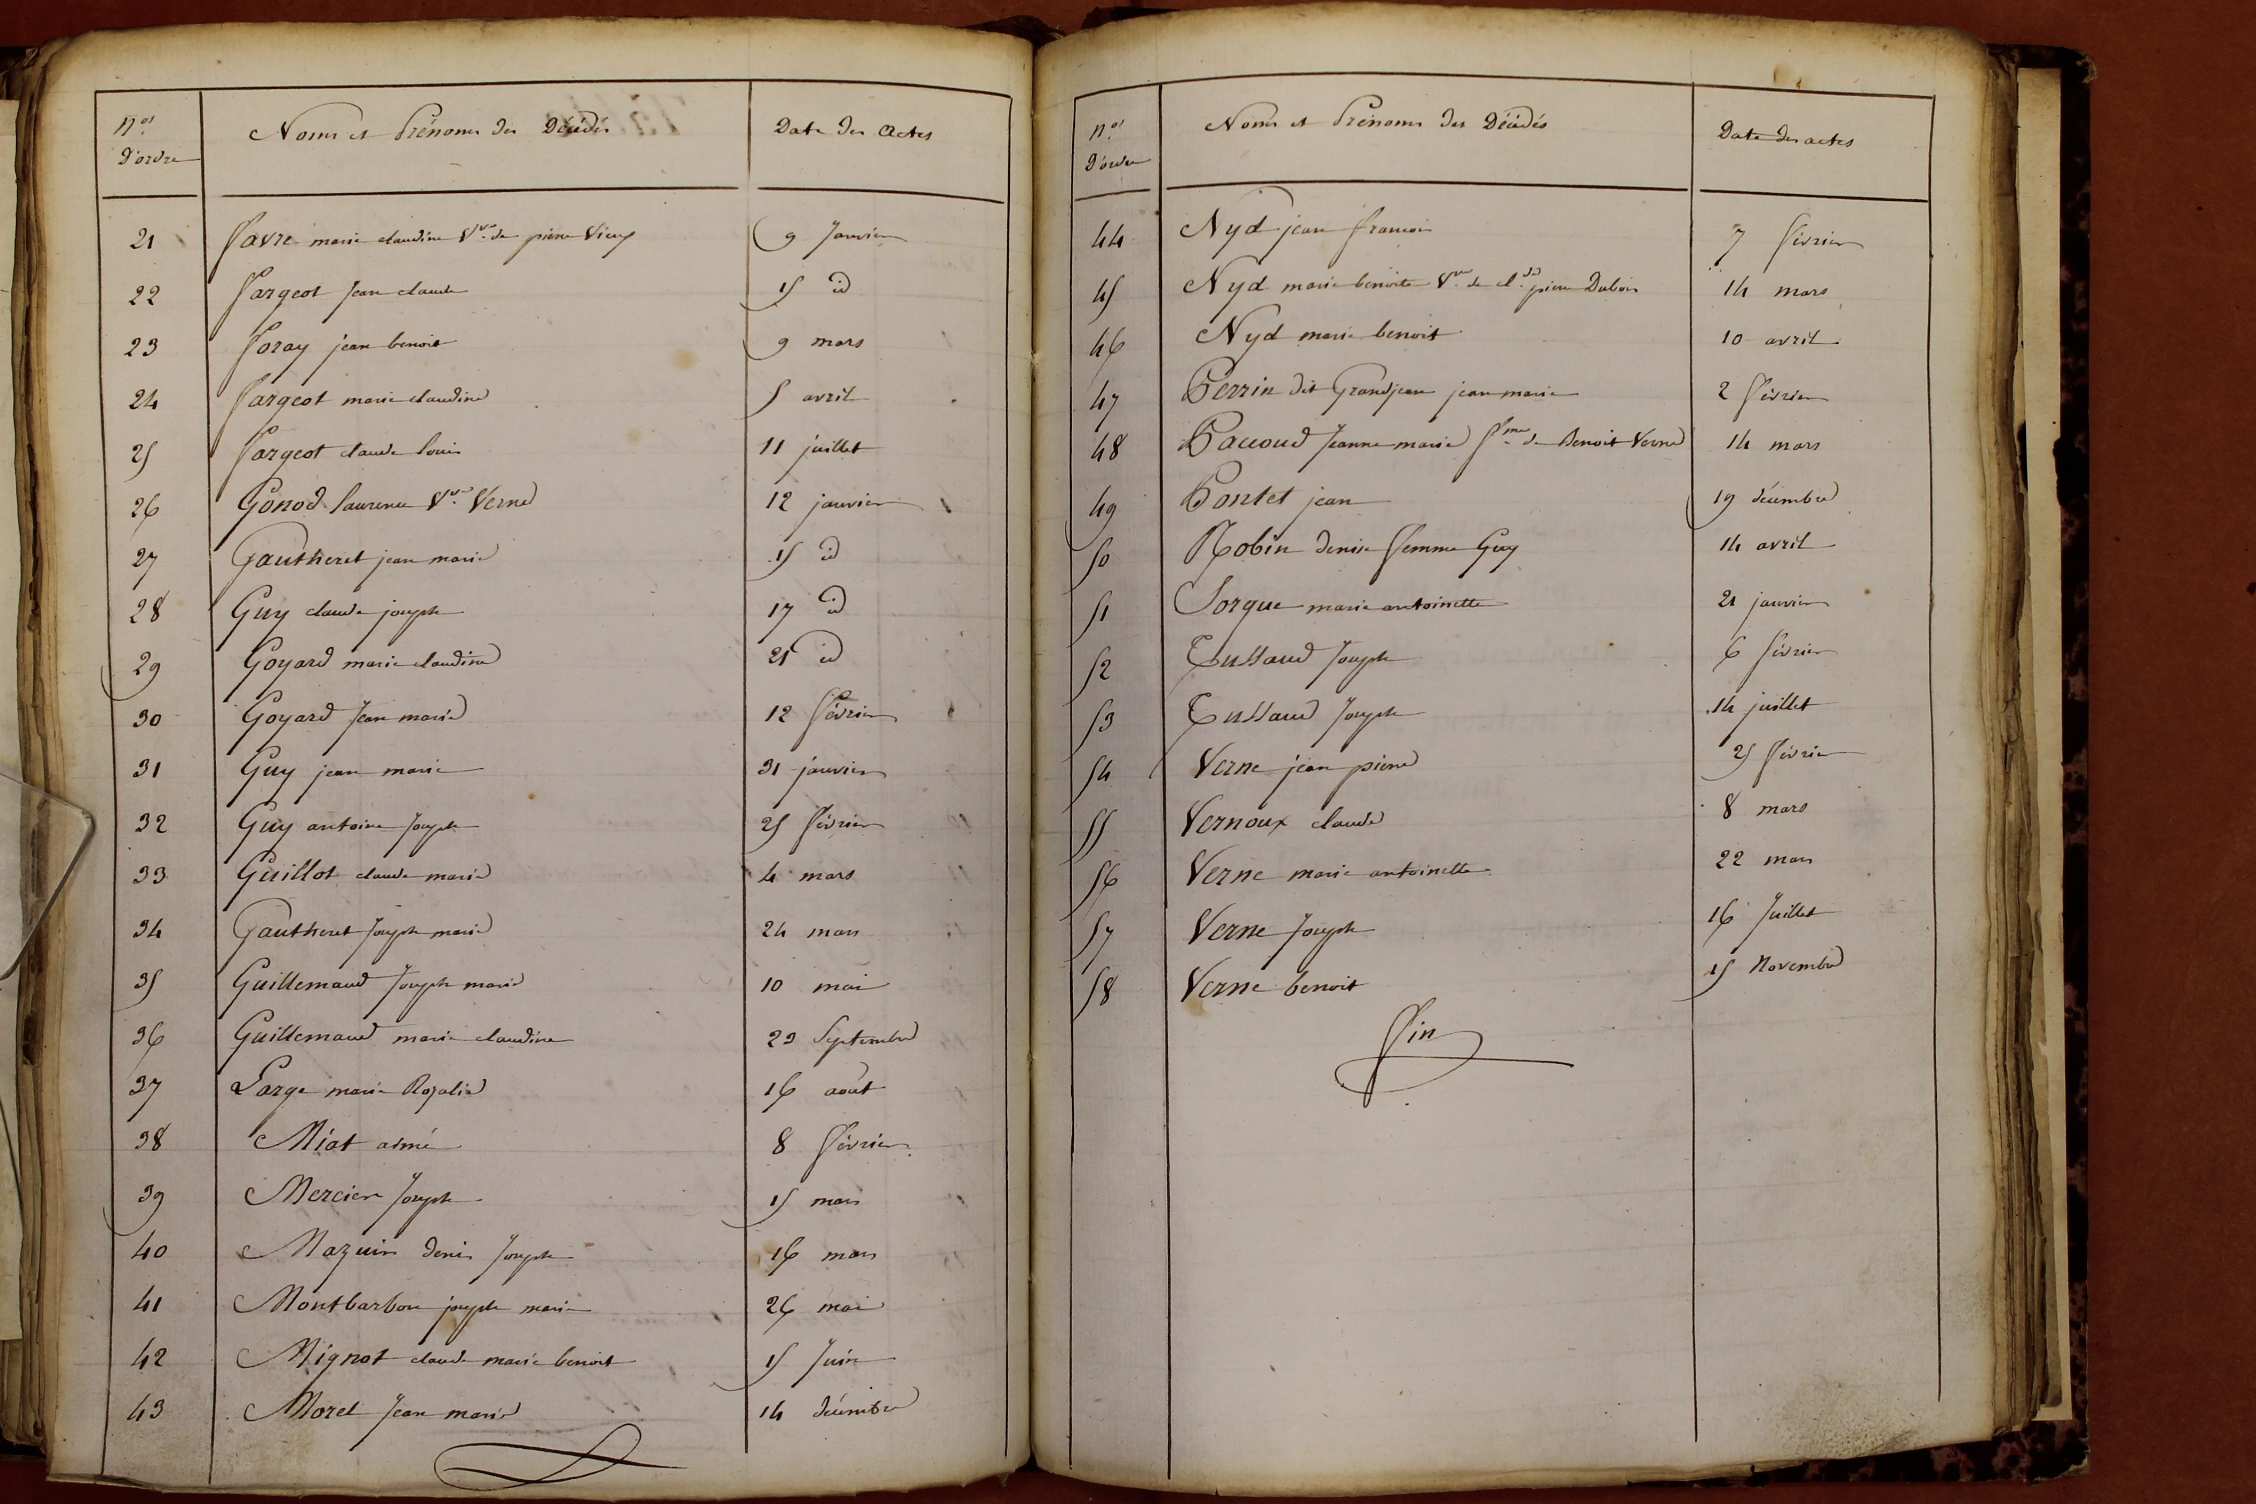 Nos d'ordre Noms et Prénoms des Décédés Date des actes
21 Favre marie claudine Vve de pierre Vieux 9 Janvier
22 Fargeot Jean claude 15 id
23 Foray jean benoit 9 mars
24 Fargeot marie claudine 5 avril
25 Fargeot claude louis 11 juillet
26 Gonod laurence Vve Verne 12 janvier
27 Gautheret jean marie 15 id
28 Guy claude joseph 17 id
29 Goyard marie claudine 21 id
30 Goyard Jean marie 12 février
31 Guy jean marie 31 janvier
32 Guy antoine Joseph 25 février
33 Guillot claude marie 4 mars
34 Gautheret Joseph marie 24 mars
35 Guillemaud Joseph marie 10 mai
36 Guillemaud marie claudine 23 Septembre
37 Large marie Rosalie 16 août
38 Miat aimé 8 février
39 Mercier Joseph 15 mars
40 Mazuin denis Joseph 16 mars
41 Montbarbon joseph marie 26 mai
42 Mignot claude marie benoit 15 Juin
43 Morel Jean marie 14 décembre
Nos d'ordre Noms et Prénoms des Décédés Date des actes
44 Nyd jean françois 7 février
45 Nyd marie benoite Vve de cl.de pierre Dubois 14 mars
46 Nyd marie benoit 10 avril
47 Perrin dit Grandjean jean marie 2 février
48 Paccoud Jeanne marie fme de Benoit Verne 14 mars
49 Pontet jean 19 décembre
50 Robin denise femme Guy 14 avril
51 Sorgue marie antoinette 21 janvier
52 Tussaud Joseph 6 février
53 Tussaud Joseph 14 juillet
54 Verne jean pierre 25 février
55 Vernoux claude 8 mars
56 Verne marie antoinette 22 mars
57 Verne Joseph 16 Juillet
58 Verne benoit 15 Novembre
fin